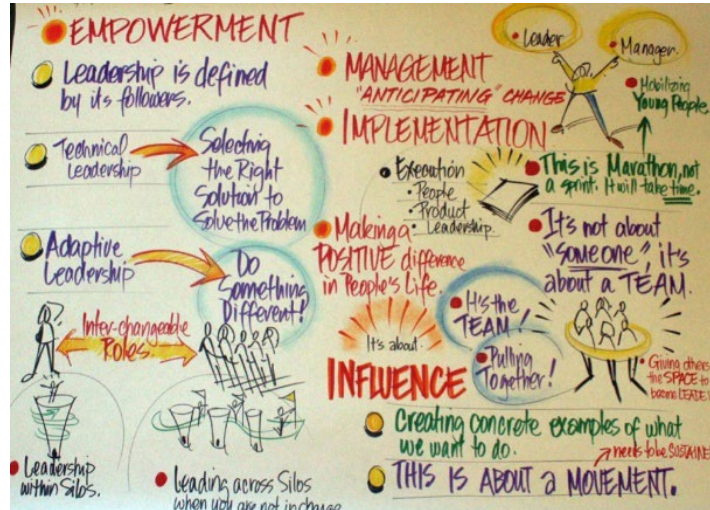 EMPOWERMENT
Leadership is defined
by its followers.
Technical
Leadership
Selecting
the Right
Solution to
Solve the Problem
Adaptive
Leadership
Do
Something
Different!
Inter-changeable
Roles
Leadership
within Silos.
Leading across Silos
when you are not in charge
MANAGEMENT
"ANTICIPATING" CHANGE
IMPLEMENTATION
Execution
• People
• Product
• Leadership.
Making a
POSITIVE difference
in People's Life.
It's about
INFLUENCE
It's the
TEAM!
Pulling
Together!
Leader
Manager
Mobilizing
Young People
This is Marathon, not
a sprint. It will take time.
It's not about
"someone", it's
about a TEAM.
Giving others
the SPACE to
become LEADE
Creating concrete examples of what
we want to do.
needs to be SUSTAINE
THIS IS ABOUT a MOVEMENT.